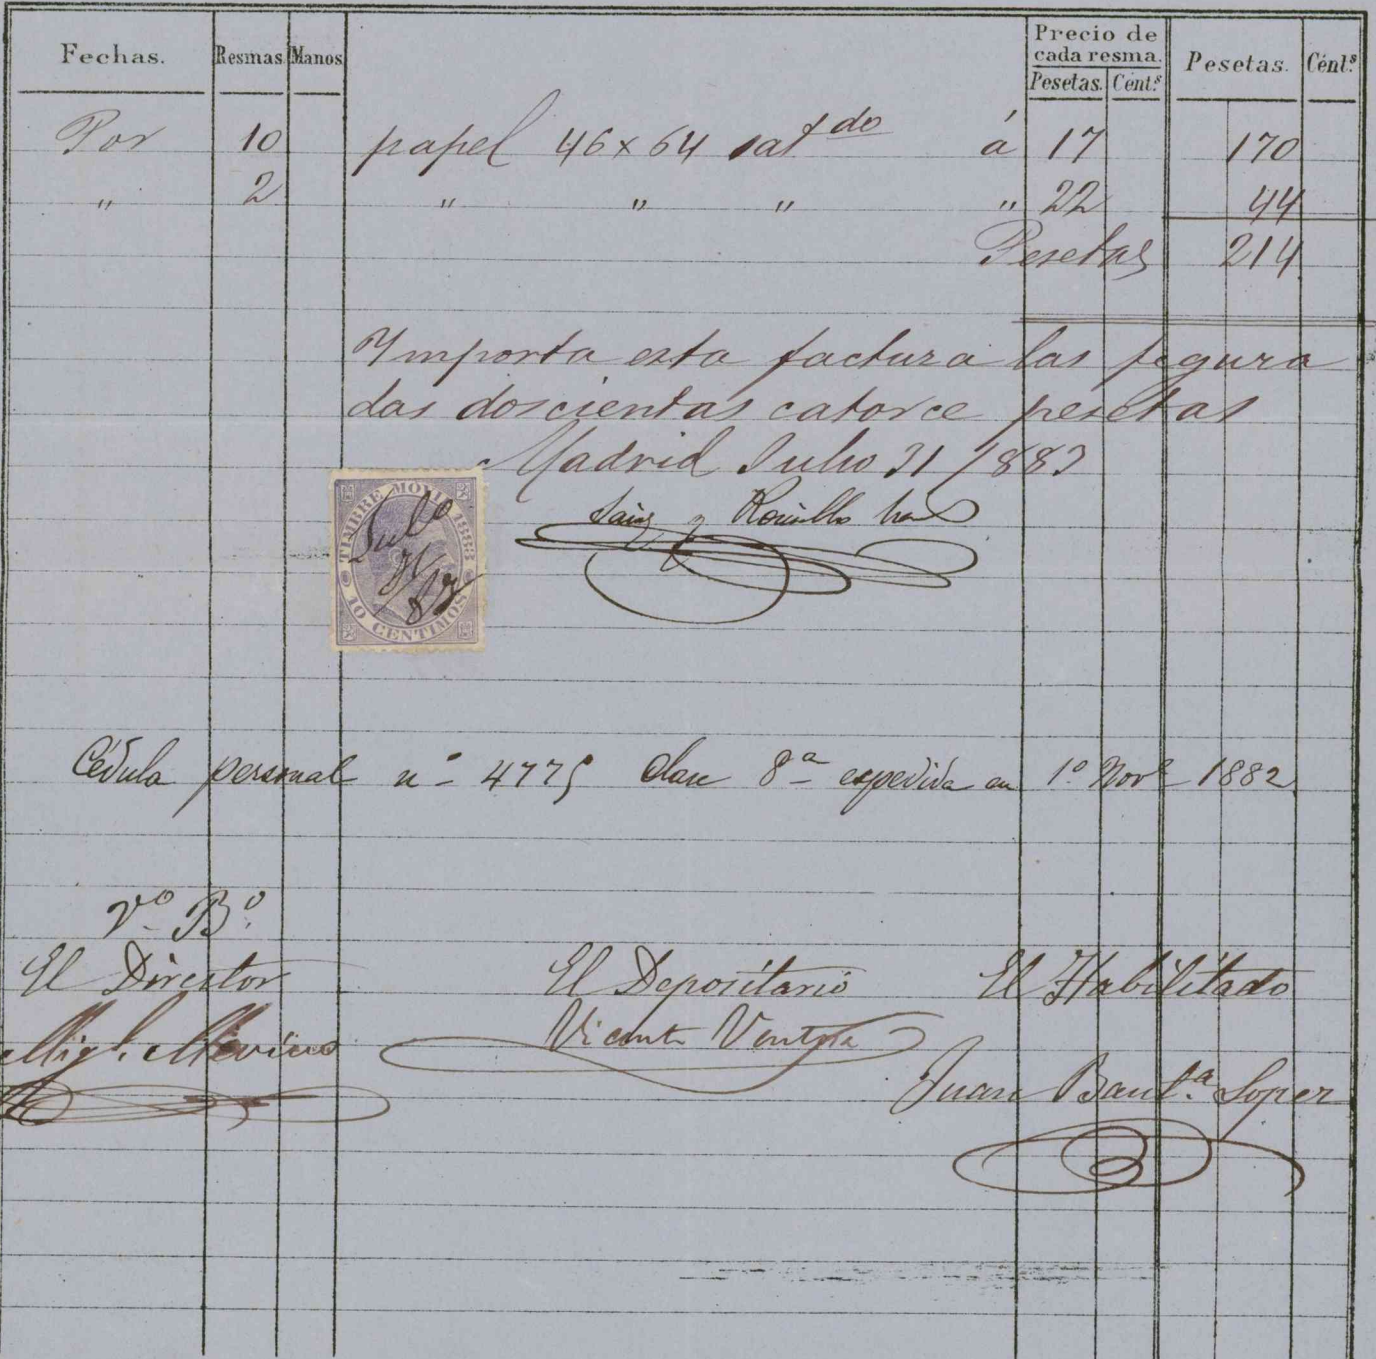 Fechas. Resmas. Manos Precio de cada resma. Pesetas. Cént.s Pesetas. Cént.s
Por 10 papel 46 x 64 sat do á 17 170
" 2 " " " " 22 44
Pesetas 214
Importa esta factura las figura
das doscientas catorce pesetas
Madrid Julio 31 / 883
Sainz y
TIMBRE MOVIL 1883
Julio
31/83
10 CENTIMOS
Cédula personal nº 4775 clase 8ª expedida en 1º Novº 1882
Vº Bº
El Director El Depositario El Habilitado
Migl. Vicente
Juan Baut.ª Loper